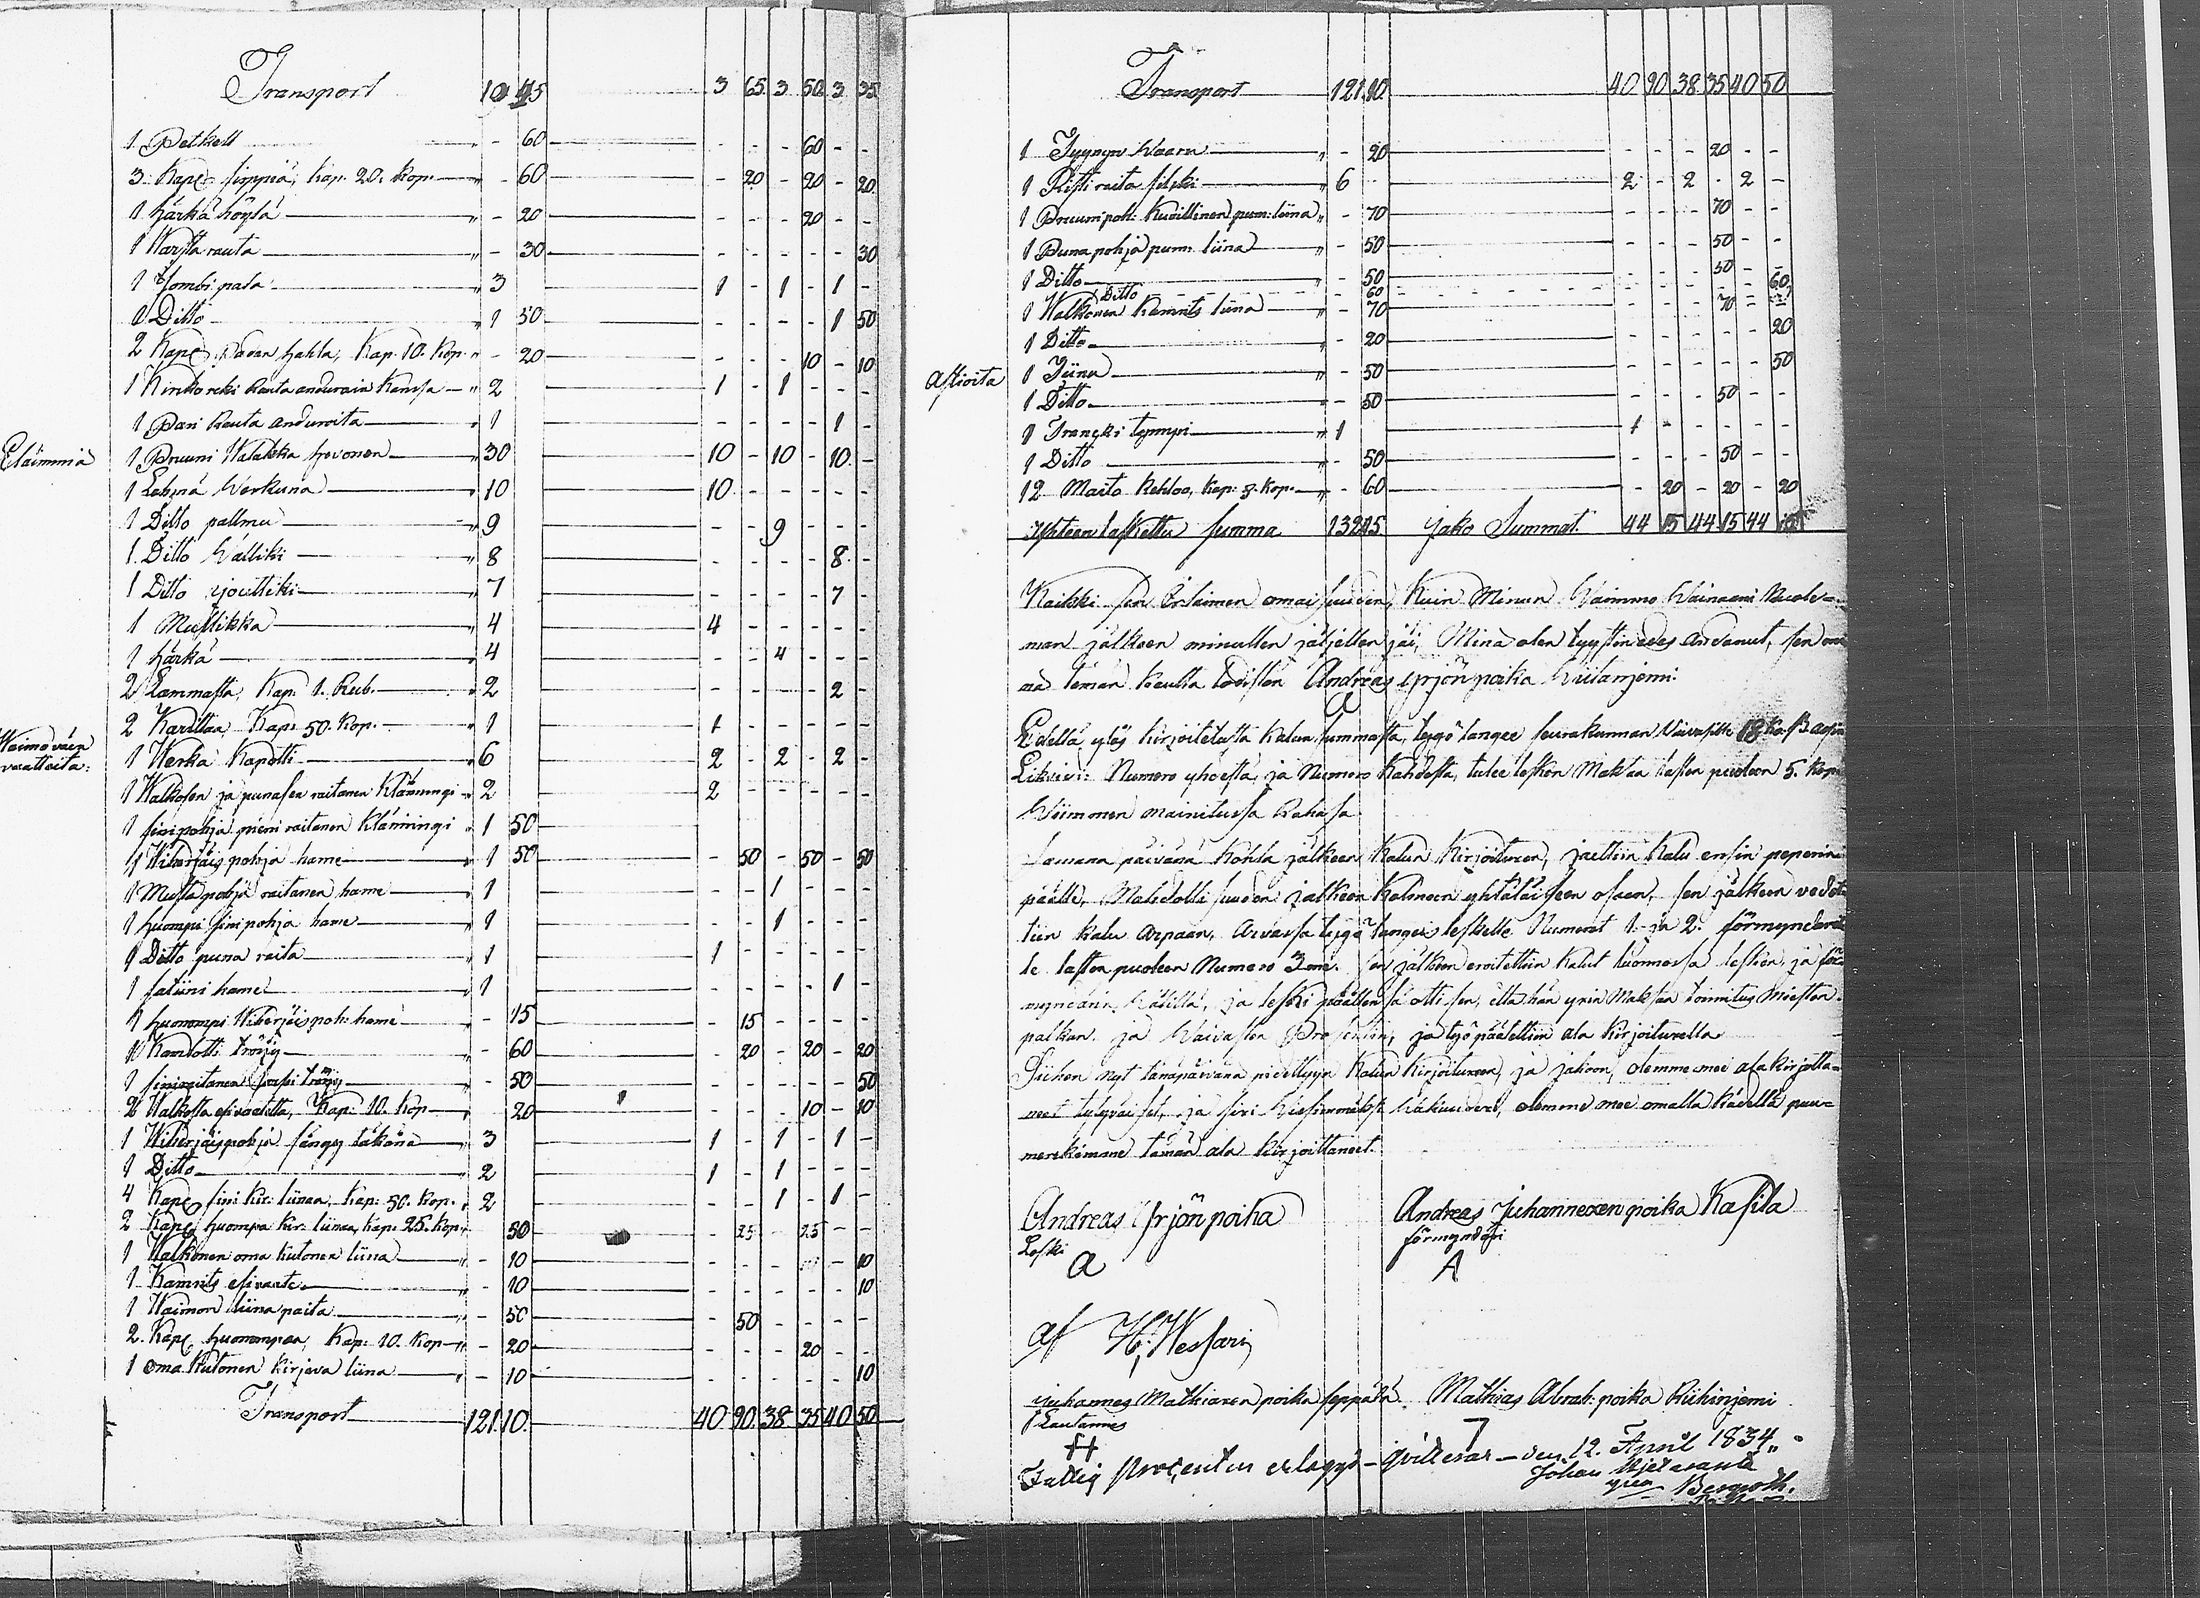 Transport 10 45 3 65 3 50 3 35
1 Petkell - 60 - - - 60 - -
3 Kapc. sirppiä, Kap. 20. Kop. - 60 - 20 - 20 - 20
1 härkä höylä - 20 - - - 20 - -
1 Warsta rauta - 30 - - - - - 30
1 Jombi pata 3 1 - 1 - 1 -
1 Ditto 1 50 - - - - 1 50
2 Kapc. Padan hahla, Kap. 10. Kop. - 20 - - - 10 - 10
1 Kirkko reki Rauta andurain Kanssa 2 1 - 1 - - -
1 Pari Rauta anduroita 1 - - - - 1 -
Eläimmiä 1 Pruuni Walakka hevonen 30 10 - 10 - 10 -
1 Lehmä Werkuna 10 10 - - - - -
1 Ditto pallmu 9 - - 9 - - -
1 Ditto Wälliki 8 - - - - 8 -
1 Ditto jouttiki 7 - - - - 7 -
1 Mustikka 4 4 - - - - -
1 härkä 4 - - 4 - - -
2 Lammasta, Kap. 1. Rub. 2 - - - - 2 -
2 Karittaa, Kap. 50. Kop. 1 1 - - - - -
Waimo väen
vaatteita: 1 Werka Kapotti 6 2 - 2 - 2 -
1 Walkosen ja punasen raitanen Klänningi 2 2 - - - - -
1 sinipohja pieni raitanen Klänningi 1 50
1 Wiherjäis pohja hame 1 50 - 50 - 50 - 50
1 Musta pohja raitanen hame 1 - - 1 - - -
1 huompi sini pohja hame 1 - - 1 - - -
1 Ditto puna raita 1 1 - - - - -
1 satiini hame 1 - - - - 1 -
1 huonompi Wiherjäis poh: hame - 15 - 15 - - - -
1 Kamlotti tröijy - 60 - 20 - 20 - 20
1 siniraitanen tröijy - 50 - - - - - 50
2 Walkosta esivaatetta, Kap. 10. Kop 20 - - - 10 - 10
1 Wiherjäispohja sängy täkänä 3 1 - 1 - 1 -
1 Ditto 2 1 - 1 - - -
4 Kapc. sini kir: liinaa, Kap. 50. Kop. 2 - - 1 - 1 -
2 Kapc. huompa kir. liinaa, kap. 25. Kop. 50 - 25 - 25 - -
1 Walkonen oma kutonen liina - 10 - - - - 10
1 Kamrits esivaate - 10 - - - - - 10
1 Waimon liina paita - 50 - 50 - - - -
2. Kapc. huonompaa, Kap. 10. Kop - 20 - - - 20 - -
1 oma Kutonen kirjava liina - 10 - - - - - 10
Transport 121 10. 40 90 38 35 40 50
Transport 121 10. 40 90 38 35 40 50
1 Tyynyn Waaru - 20 - - - 20 - -
1 Risti raita silki 6 2 - 2 - 2 -
1 Pruunipoh: Kuvillinen pum: liina - 70 - - - 70 - -
1 Puna pohja pum: liina - 50 - - - 50 - -
1 Ditto - 50 - - - 50 - -
Ditto - 60 - - - - - 60
1 Walkonen Kamrits liina - 70 - - - 70 - -
1 Ditto - 20 - - - - - 20
Astioita 1 Tiinu - 50 - - - - - 50
1 Ditto - 50 - - - 50 - -
1 Trancki tynnyri 1 1 - - - - -
1 Ditto - 50 - - - 50 - -
12 Maito Kehloo, Kap: 5. Kop. - 60 - 20 - 20 - 20
Yhteen laskettu summa 132 15 Jako Summat 44 15 44 15 44 15
Kaikki sen Irtaimen omaisuuden, Kuin Minun Waimmo Wainaani Kuole-
man jälkeen minullen jäljellen jäi, Minä olen tyystin edes andanut, sen
tämän kautta todistan Andreas Yrjön poika Wiitaniemi.
A
Edellä ylös kirjoitetusta Kalun summasta, tygö langee seurakunnan Vaivasille 18 Ko.
Numero yhdestä, ja Numero Kahdesta, tulee lesken Maksaa lasten puoleen 5. Kop.
Wiimmen mainitussa Rahassa
Samana päivänä Kohta jälkeen Kalun Kirjoituxen, jaettiin Kalu ensin peperin
päälle, Mahdollisuuden jälkeen Kolmeen yhtäläiseen osaan, sen jälkeen vedet-
tiin kalu arpaan, Arvassa tygö langeis leskelle Numerot 1. ja 2. förmynderil
le lasten puoleen Numero 3mi. sen jälkeen eroitettiin Kalut luonnossa lesken ja för-
mynderin Välillä, ja leski päällensä otti sen, että hän yxin Maksaa toimitus Miesten
palkan ja Waivasten Prosentin, ja työ päätettiin ala kirjoituxella
Siihen nyt tänäpäivänä pidettyyn Kalun Kirjoituxeen, ja jakoon, olemme mee ala kirjotta-
neet tytyväiset, ja sixi Wakuudexi, olemme mee omalla Kädellä puu-
merkimme tämän ala kirjoittaneet.
Andreas Yrjön poika Andreas Juhannexen poika Kasila
Leski förmynderi
A A
af H. Wessari
Juhannes Mathiaxen poika seppälä. Mathias Abrah: poika Riihinjemi
Lautamies
Fattig Procenten erlagd - qvitteras - den 12. April 1834
Johan